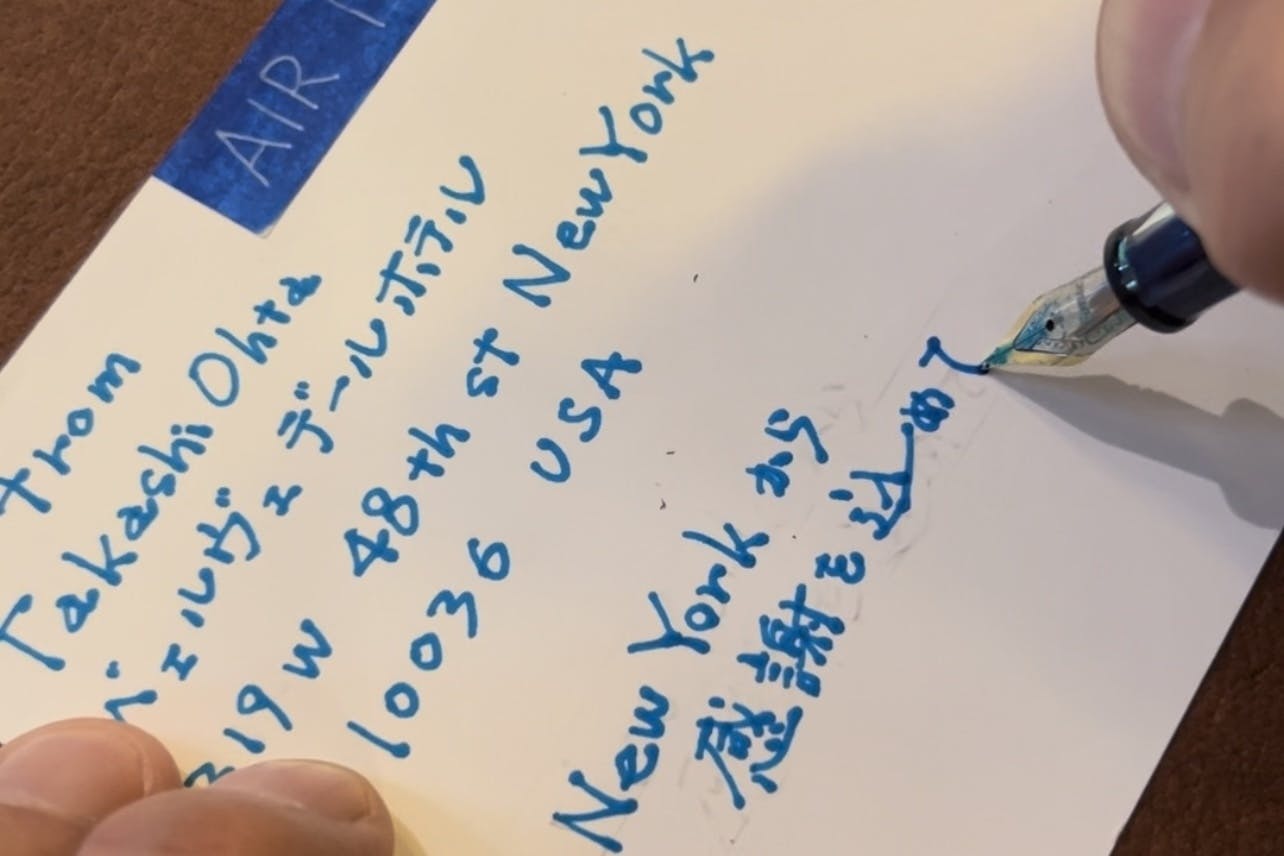 AIR
from
Takashi Ohta
ベェルヴェデールホテル
319 W 48th st New York
10036 USA
New York から
感謝を込めて